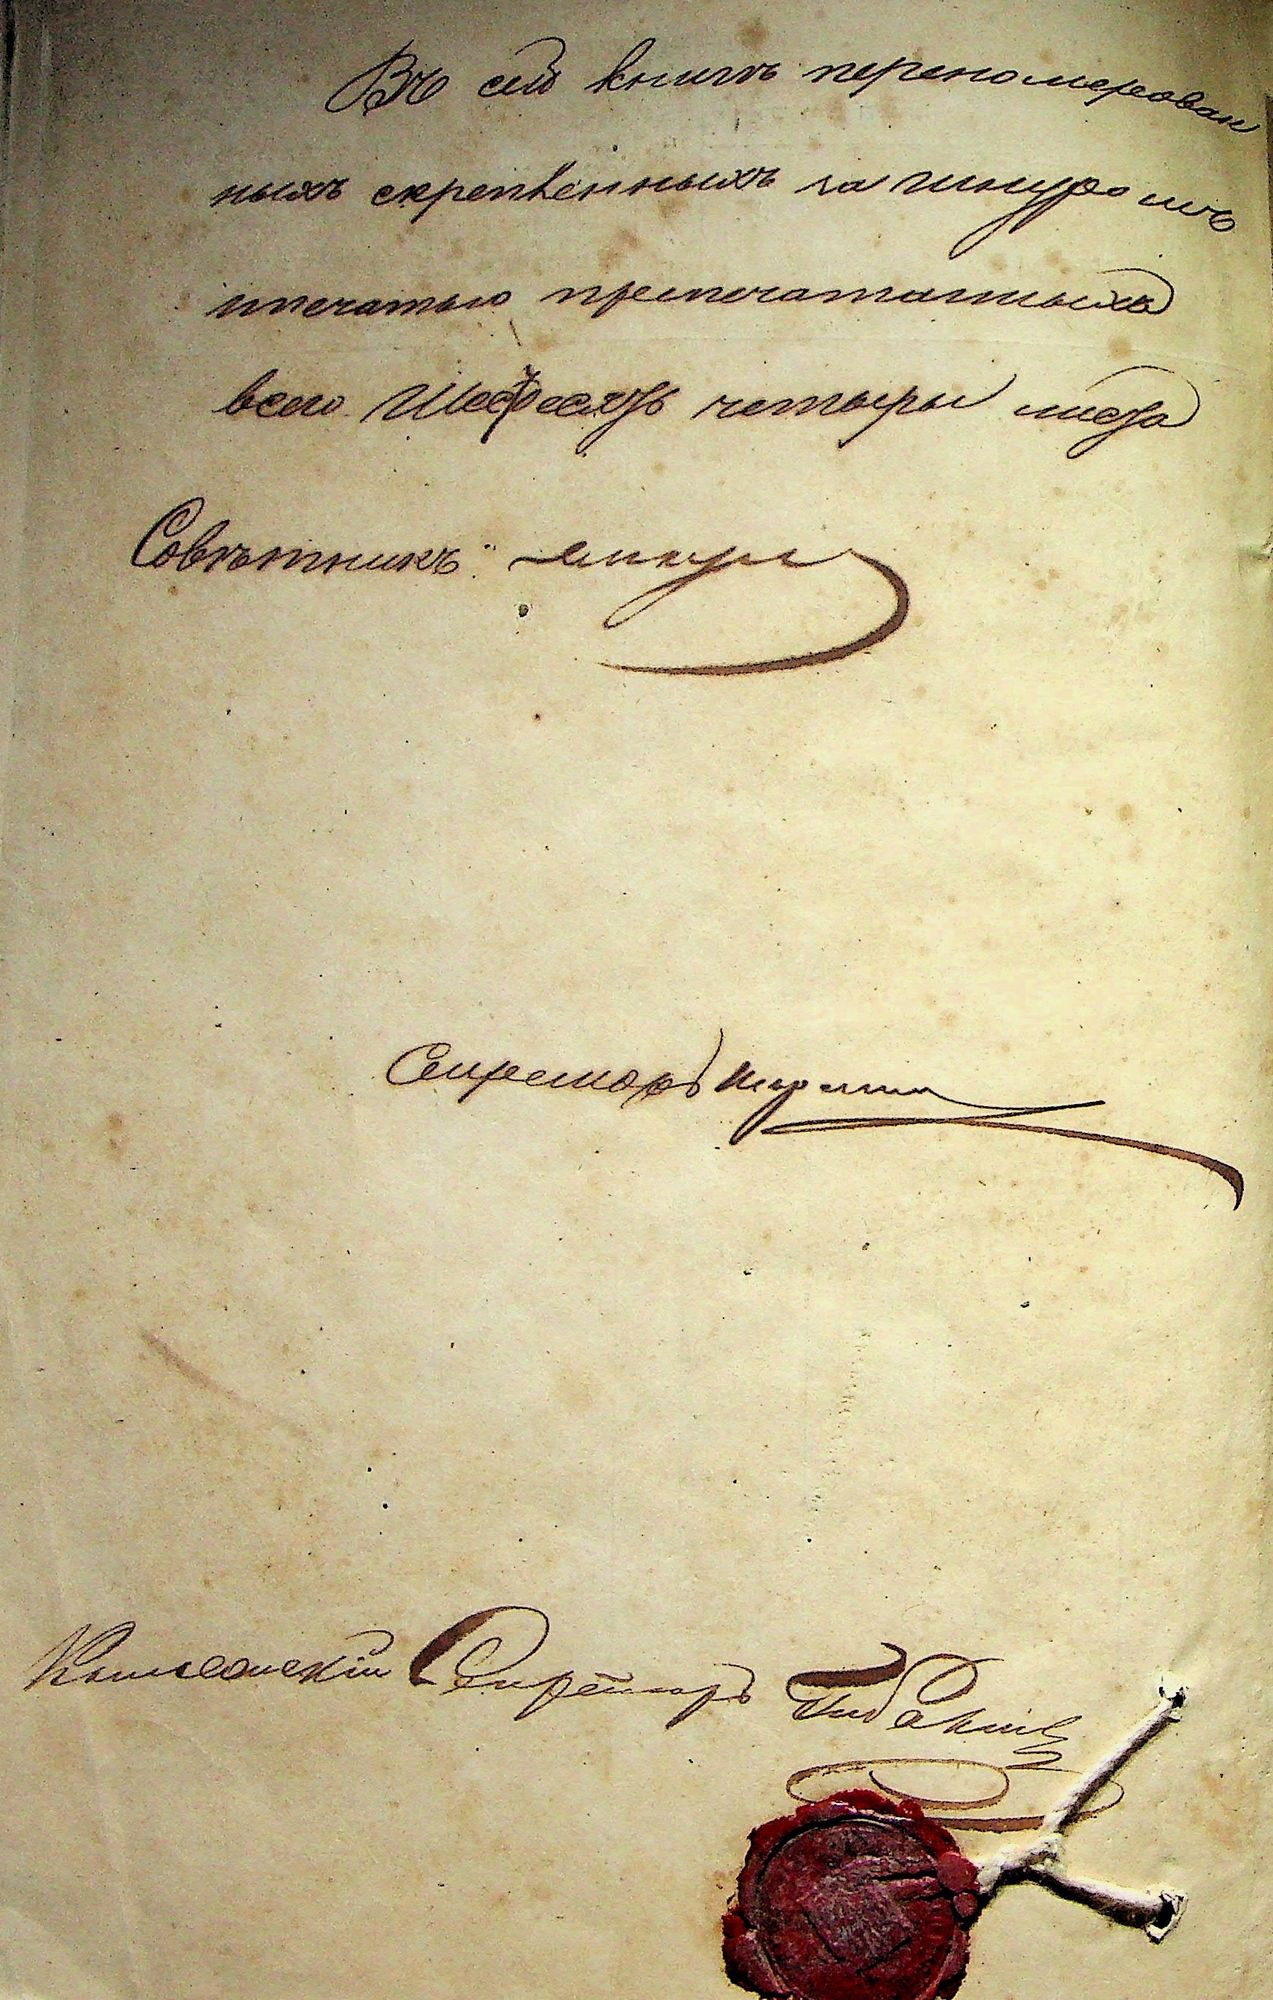 Въ сей книгѣ переномерован
ныхъ скрепленныхъ за шнуромъ
ипечатью препечатанныхъ
всего Шесдесятъ четыры листа
Совѣтникъ
Секретарь
Коллежскій Секретарь